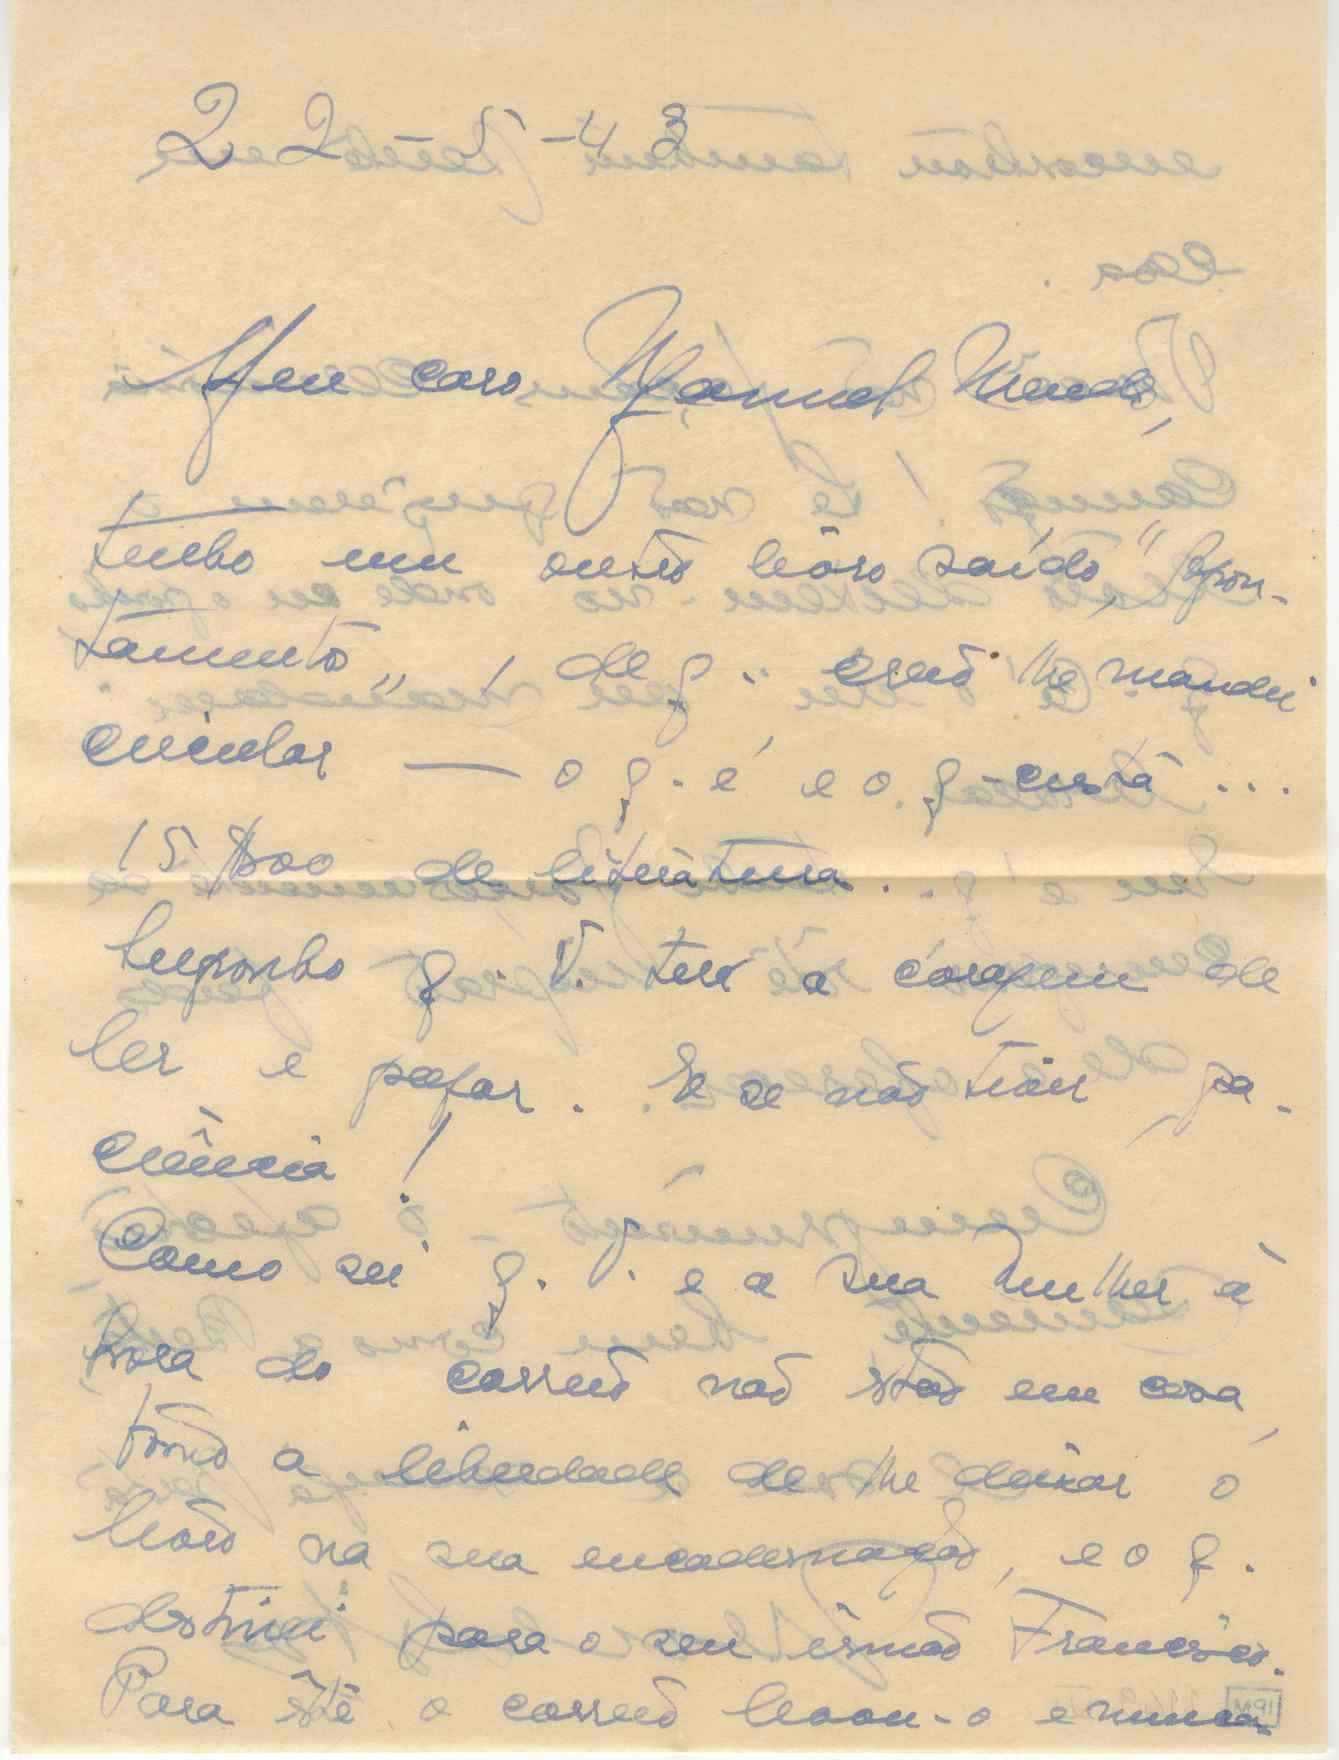 22-5-43
Meu caro Manuel Mendes,
tenho um outro livro saído, "Apon-
tamentos", de q. creio lhe mandei
circular — o q. é e o q. custa...
15$00 de literatura.
Suponho q. V. terá a coragem de
ler e pagar. E se não tiver, pa-
ciência!
Como sei q. V. e a sua mulher à
hora do correio não estão em casa,
tomo a liberdade de lhe deixar o
livro na sua encadernação, e o q.
destinei para o seu irmão Francisco.
Para êste o correio levou-o e nunca